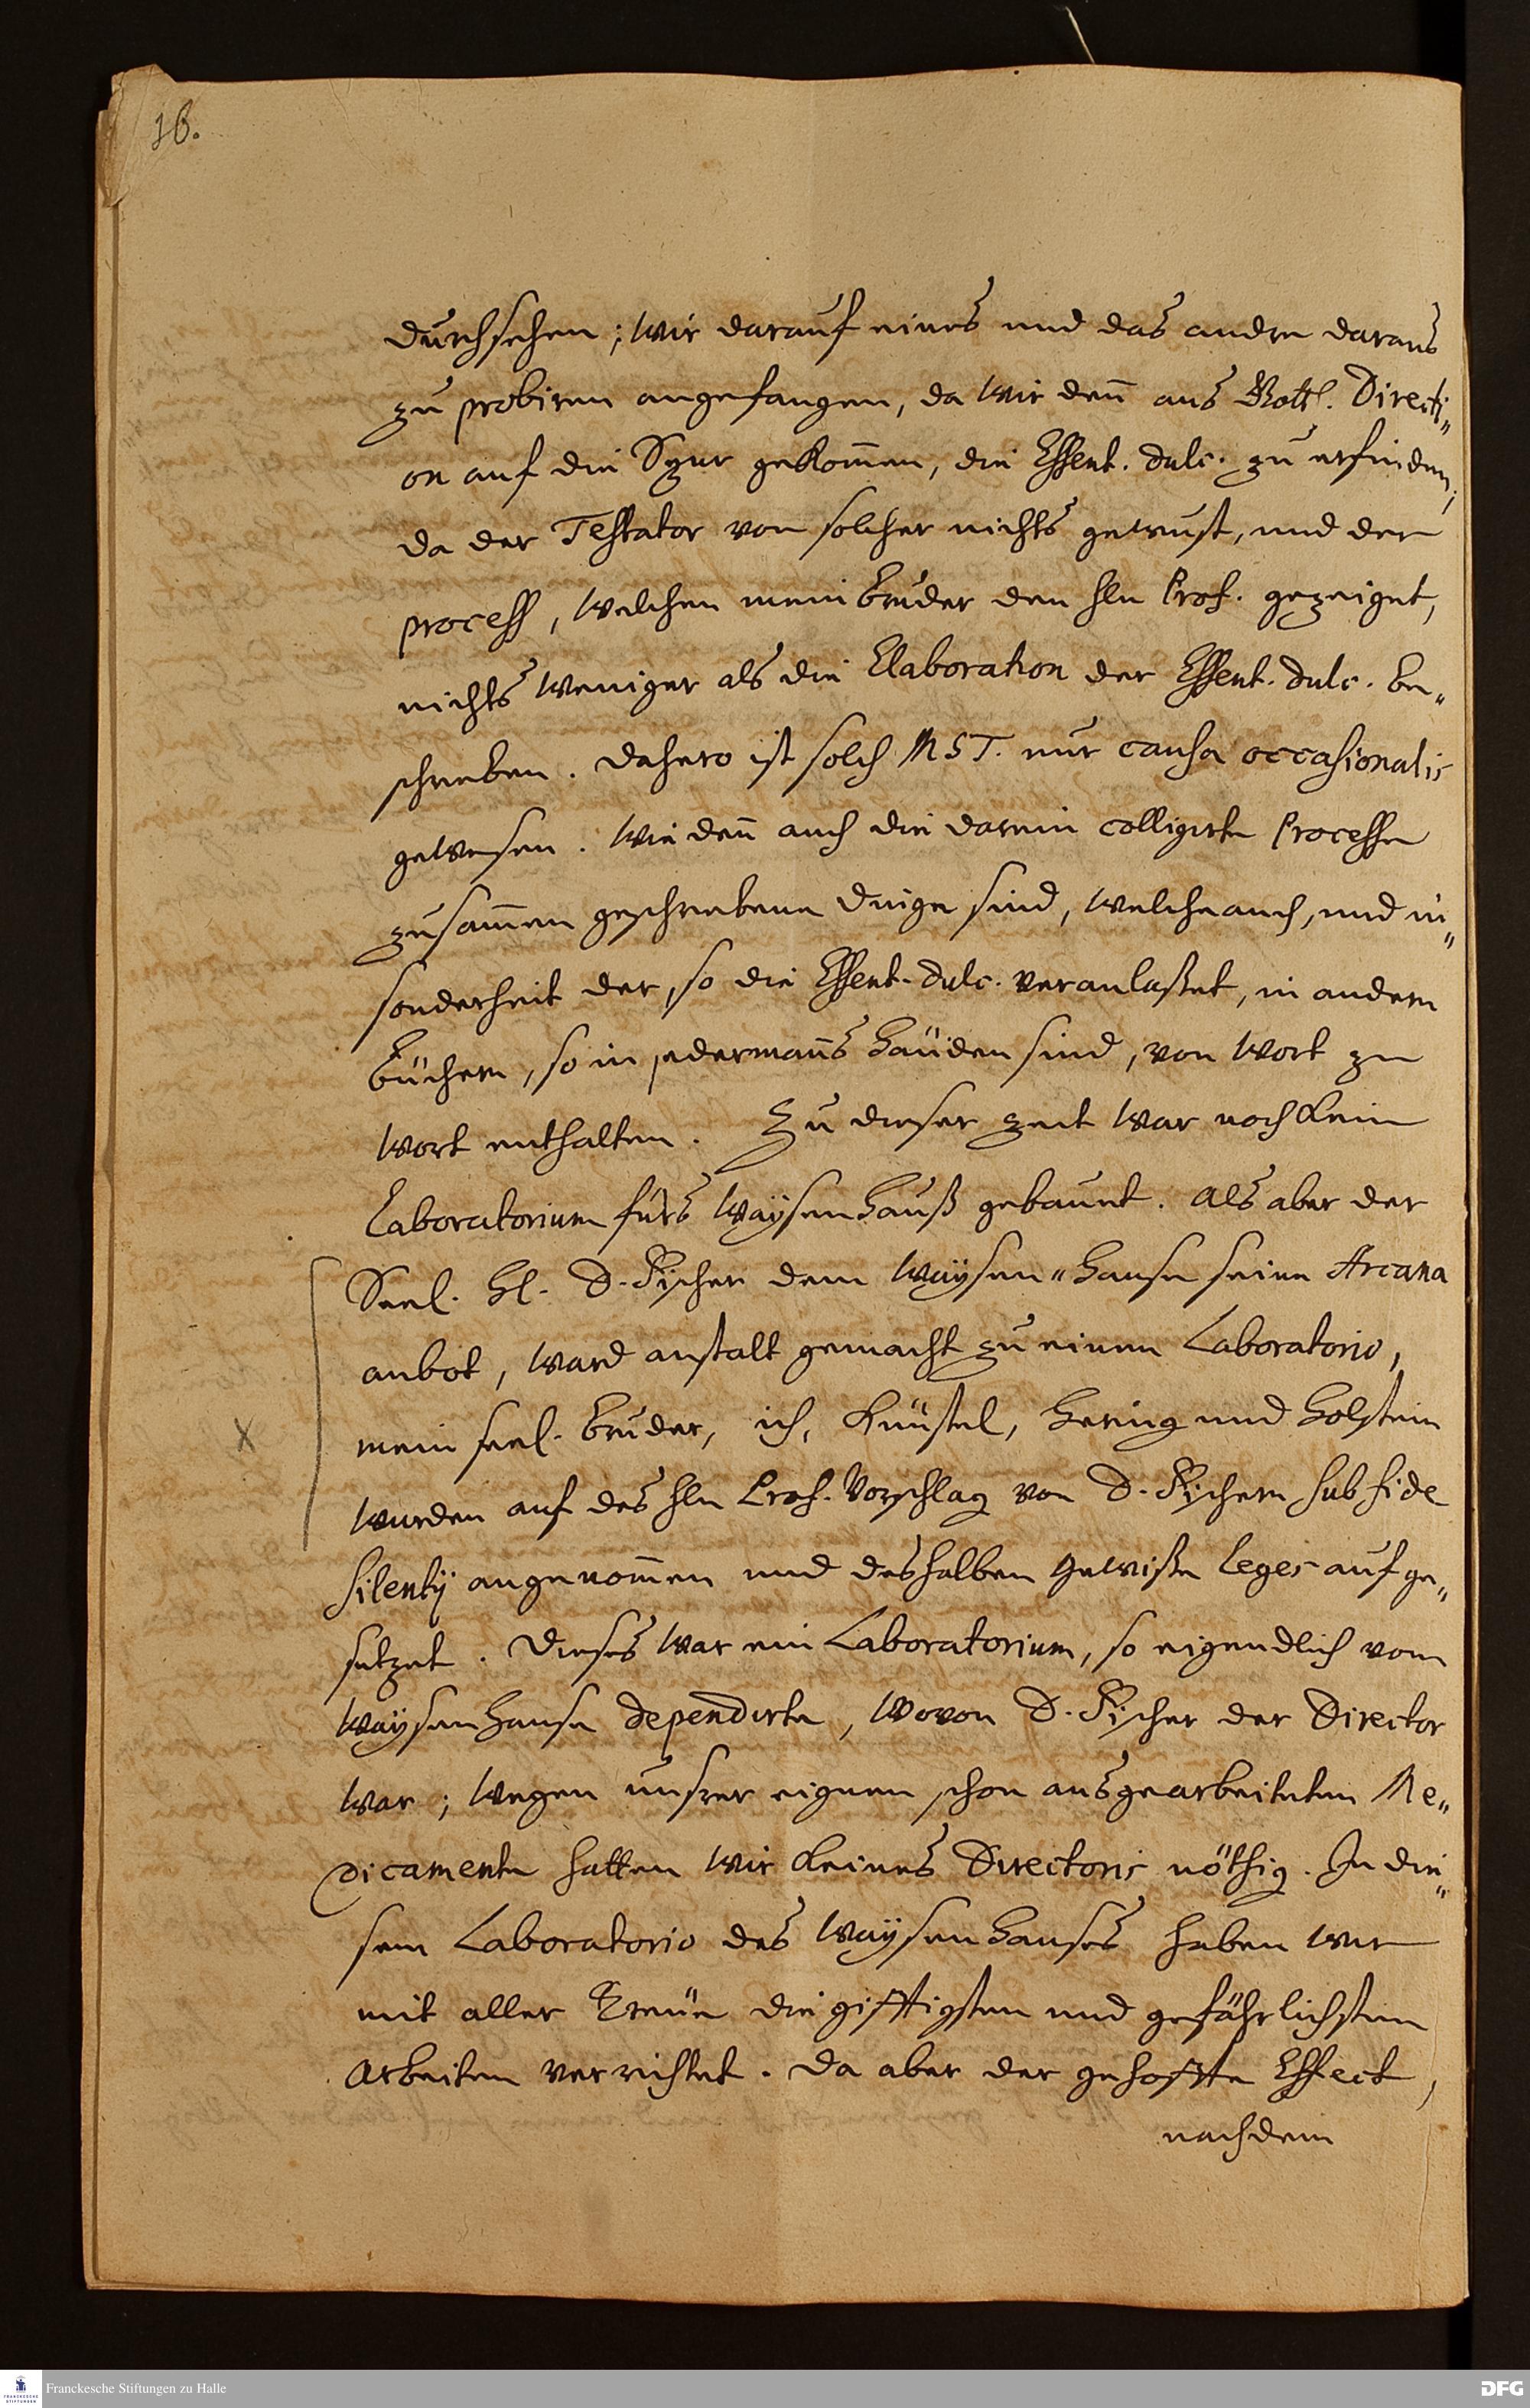 16.
durchsehen; wir darauf eines und das andre daraus
zu probiren angefangen, da wir deñ aus Gottl. Directi„
on auf die Spur gekom̃en, die Essent. dulc. zu erfinden,
da der Testator von solcher nichts gewust, und der
process, welchen mein bruder den Hln Prof. gezeiget,
nichts weniger als die Elaboration der Essent. dulc. be„
schrieben. dahero ist solch MST. nur causa occasionalis
gewesen. Wie deñ auch die darein colligirte Processe
zusam̃en geschriebene dinge sind, welche auch, und in„
sonderheit der, so die Essent. dulc. veranlaßet, in andern
büchern, so in jedermañs Händen sind, von Wort zu
Wort enthalten. Zu dieser zeit war noch kein
Laboratorium fürs Waÿsen Hauß gebauet. als aber der
Seel. Hl. D. Fischer dem Waÿsen„Hause seine Arcana
anbot, ward anstalt gemacht zu einem Laboratorio,
mein seel. bruder, ich, Künstel, Hering und Holstein
wurden auf des Hln Prof. Vorschlag von D. Fischern sub fide
silentij angenom̃en und deshalben gewiße Leges aufge„
setzet. dieses war ein Laboratorium, so eigendlich vom
Waÿsen Hause dependirte, wovon D. Fischer der Director
war; wegen unsrer eignen schon ausgearbeiteten Me„
dicamente hatten wir keines Directoris nöthig. In die„
sem Laboratorio des Waÿsen Hauses haben wir
mit aller Treüe die gifftigsten und gefährlichsten
arbeiten verrichtet. da aber der gehoffte Effect,
nachdem
X
Franckesche Stiftungen zu Halle
FRANCKESCHE STIFTUNGEN
DFG